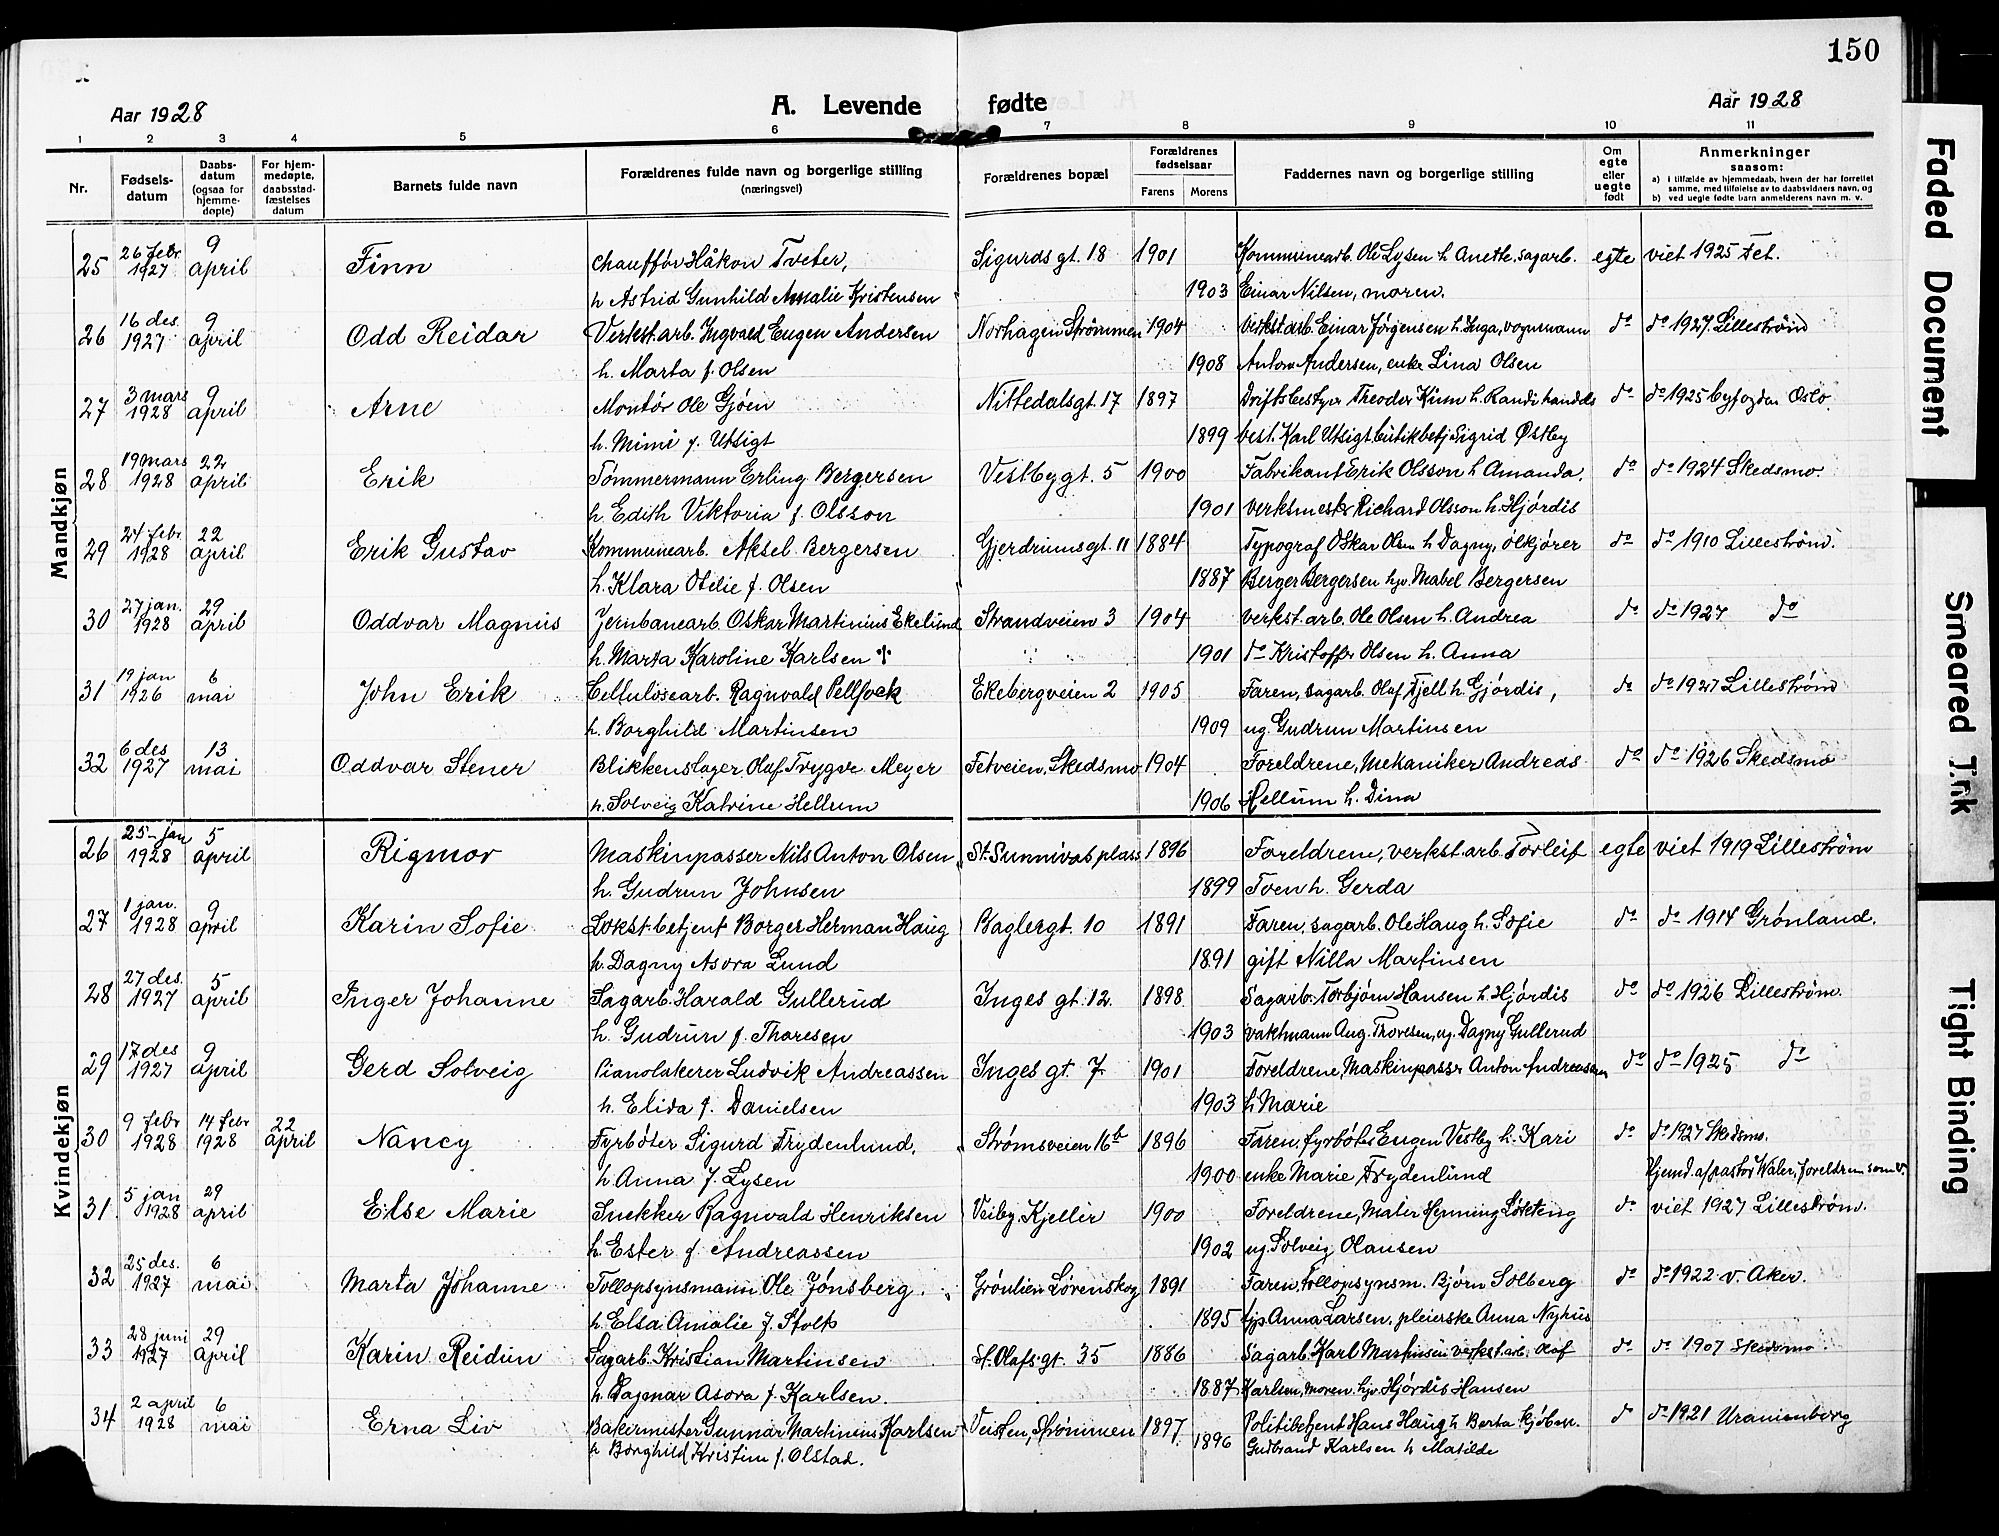 150
Aar 1928
A. Levende fødte
Aar 1928
1 2 3 4 5 6 7 8 9 10 11
Nr.
Fødsels-
datum
Daabs-
datum
(ogsaa for
hjemme-
døpte)
For hjem-
medøpte,
daabsstad-
fæstelses
datum
Barnets fulde navn
Forældrenes fulde navn og borgerlige stilling
(næringsvei)
Forældrenes bopæl
Forældrenes
fødselsaar
Farens Morens
Faddernes navn og borgerlige stilling
Om
egte
eller
uegte
født
Anmerkninger
saasom:
a) i tilfælde av hjemmedaab, hvem der har forrettet
samme, med tilføielse av to daabsvidners navn, og
b) ved uegte fødte barn anmelderens navn m. v.
Mandkjøn
25 26 febr. 1927 9 april Finn chauffør Håkon Tveter, Sigurds gt. 18 1901 Kommunearb. Ole Lysen h Anette. sagarb. egte viet 1925 Fet.
h Astrid Gunhild Amalie Kristensen 1903 Einar Nilsen, moren.
26 16 des. 1927 9 april Odd Reidar Verkst. arb. Ingvald Eugen Andersen Norhagen Strømmen 1904 Verkst arb. Einar Jørgensen h. Inga, vognmann do do 1927. Lillestrøm
h. Marta f. Olsen 1908 Anton Andersen, enke Lina Olsen
27 3 mars 1928 9 april Arne Montør Ole Gjøen Nittedalsgt. 17 1897 Driftsbestyrer Theodor Kum h. Randi handels do do 1925 byfogden Oslo.
h. Mimi f. Utsigt 1899 best. Karl Utsigt. butikbetj Sigrid Østby
28 19 mars 1928 22 april Erik Tømmermann Erling Bergersen Vestbygt. 5 1900 Fabrikant Erik Olsson h Amanda. do do 1924 Skedsmo.
h. Edith Viktoria f. Olsson 1901 verksmester Richard Olsson h. Hjørdis
29 24 febr. 1928 22 april Erik Gustav Kommunearb. Aksel Bergersen Gjerdrumsgt. 11 1884 Typograf Oskar Olsen h Dagny, ølkjører do do 1910 Lillestrøm.
h. Klara Otilie f. Olsen 1887 Berger Bergersen hjv. Mabel Bergersen
30 27 jan. 1928 29 april Oddvar Magnus Jernbanearb. Oskar Martinius Ekelund Strandveien 3 1904 verkst. arb. Ole Olsen h. Andrea do do 1927 do
h. Marta Karoline Karlsen 1901 do Kristoffer Olsen h. Anna
31 19 jan 1926 6 mai John Erik Cellulosearb. Ragnvald Pellfoek Ekebergveien 2 1905 Faren, sagarb. Olaf Fjell h Gjørdis, do do 1927 Lillestrøm
h. Borghild Martinsen 1909 ug. Gudrun Martinsen
32 6 des 1927 13 mai Oddvar Stener Blikkenslager Olaf Trygve Meyer Fetveien, Skedsmo 1904 Foreldrene, Mekaniker Andreas do do 1926 Skedsmo
h. Solveig Katrine Hellum 1906 Hellum h. Dina
Kvindekjøn
26 25 jan 1928 5 april Rigmor Maskinpasser Nils Anton Olsen St. Sunnivas plass 1896 Foreldrene, verkst. arb. Torleif egte viet 1919 Lillestrøm
h. Gudrun Johnsen 1899 Toen h. Gerda
27 1 jan. 1928 9 april Karin Sofie Lokst. betjent Borger Herman Haug Baglergt. 10 1891 Faren, sagarb. Ole Haug h. Sofie do do 1914 Grønland.
h. Dagny Asora Lund 1891 gift Nilla Martinsen
28 27 des. 1927 5 april Inger Johanne Sagarb. Harald Gullerud Inges gt. 12 1898 Sagarb. Torbjørn Hansen h. Hjørdis do do 1926 Lillestrøm.
h. Gudrun f. Thoresen 1903 vaktmann Aug. Thoresen, ug. Dagny Gullerud
29 17 des 1927 9 april Gerd Solveig Pianolakerer Ludvik Andreassen Inges gt. 7 1901 Foreldrene, Maskinpasser Anton Andreassen do do 1925 do
h. Elida f. Danielsen 1903 h Marie
30 9 febr 1928 14 febr 1928 22 april Nancy Fyrbøter Sigurd Frydenlund, Strømsveien 16b 1896 Faren, fyrbøter Eugen Vestby h. Kari do do 1927 Skedsmo.
h Anna f. Lysen 1900 enke Marie Frydenlund Hjemd. af pastor Waler, foreldrene som v.
31 5 jan 1928 29 april Else Marie Snekker Ragnvald Henriksen Veiby, Kjeller 1900 Foreldrene, Maler Henning Løkteng do viet 1927 Lillestrøm.
h. Ester f. Andreassen 1902 ug. Solveig Olausen
32 25 des. 1927 6 mai. Marta Johanne Tollopsynsmann Ole Jønsberg Grønlien Lørenskog 1891 Faren, Tollopsynsm. Bjørn Solberg do do 1922 v. Aker.
h Elsa Amalie f. Stolk 1895 tjp. Anna Larsen, pleierske Anna Nyhus
33 28 juni 1927 29 april Karin Reidun Sagarb. Kristian Martinsen St. Olafs gt. 35 1886 Sagarb. Karl Martinsen verkst. arb. Olaf do do 1907 Skedsmo.
h. Dagmar Asora f. Karlsen. 1887 Karlsen, moren. hjv. Hjørdis Hansen
34 2 april 1928 6 mai Erna Liv Bakermester Gunnar Martinius Karlsen Veisten, Strømmen 1897. Politibetjent Hans Haug h Berta kjøbm. d do 1921 Uranienborg
h Borghild Kristine f. Olstad. 1896 Gudbrand Karlsen h Matilde
Faded Document
Smeared Ink
Tight Binding